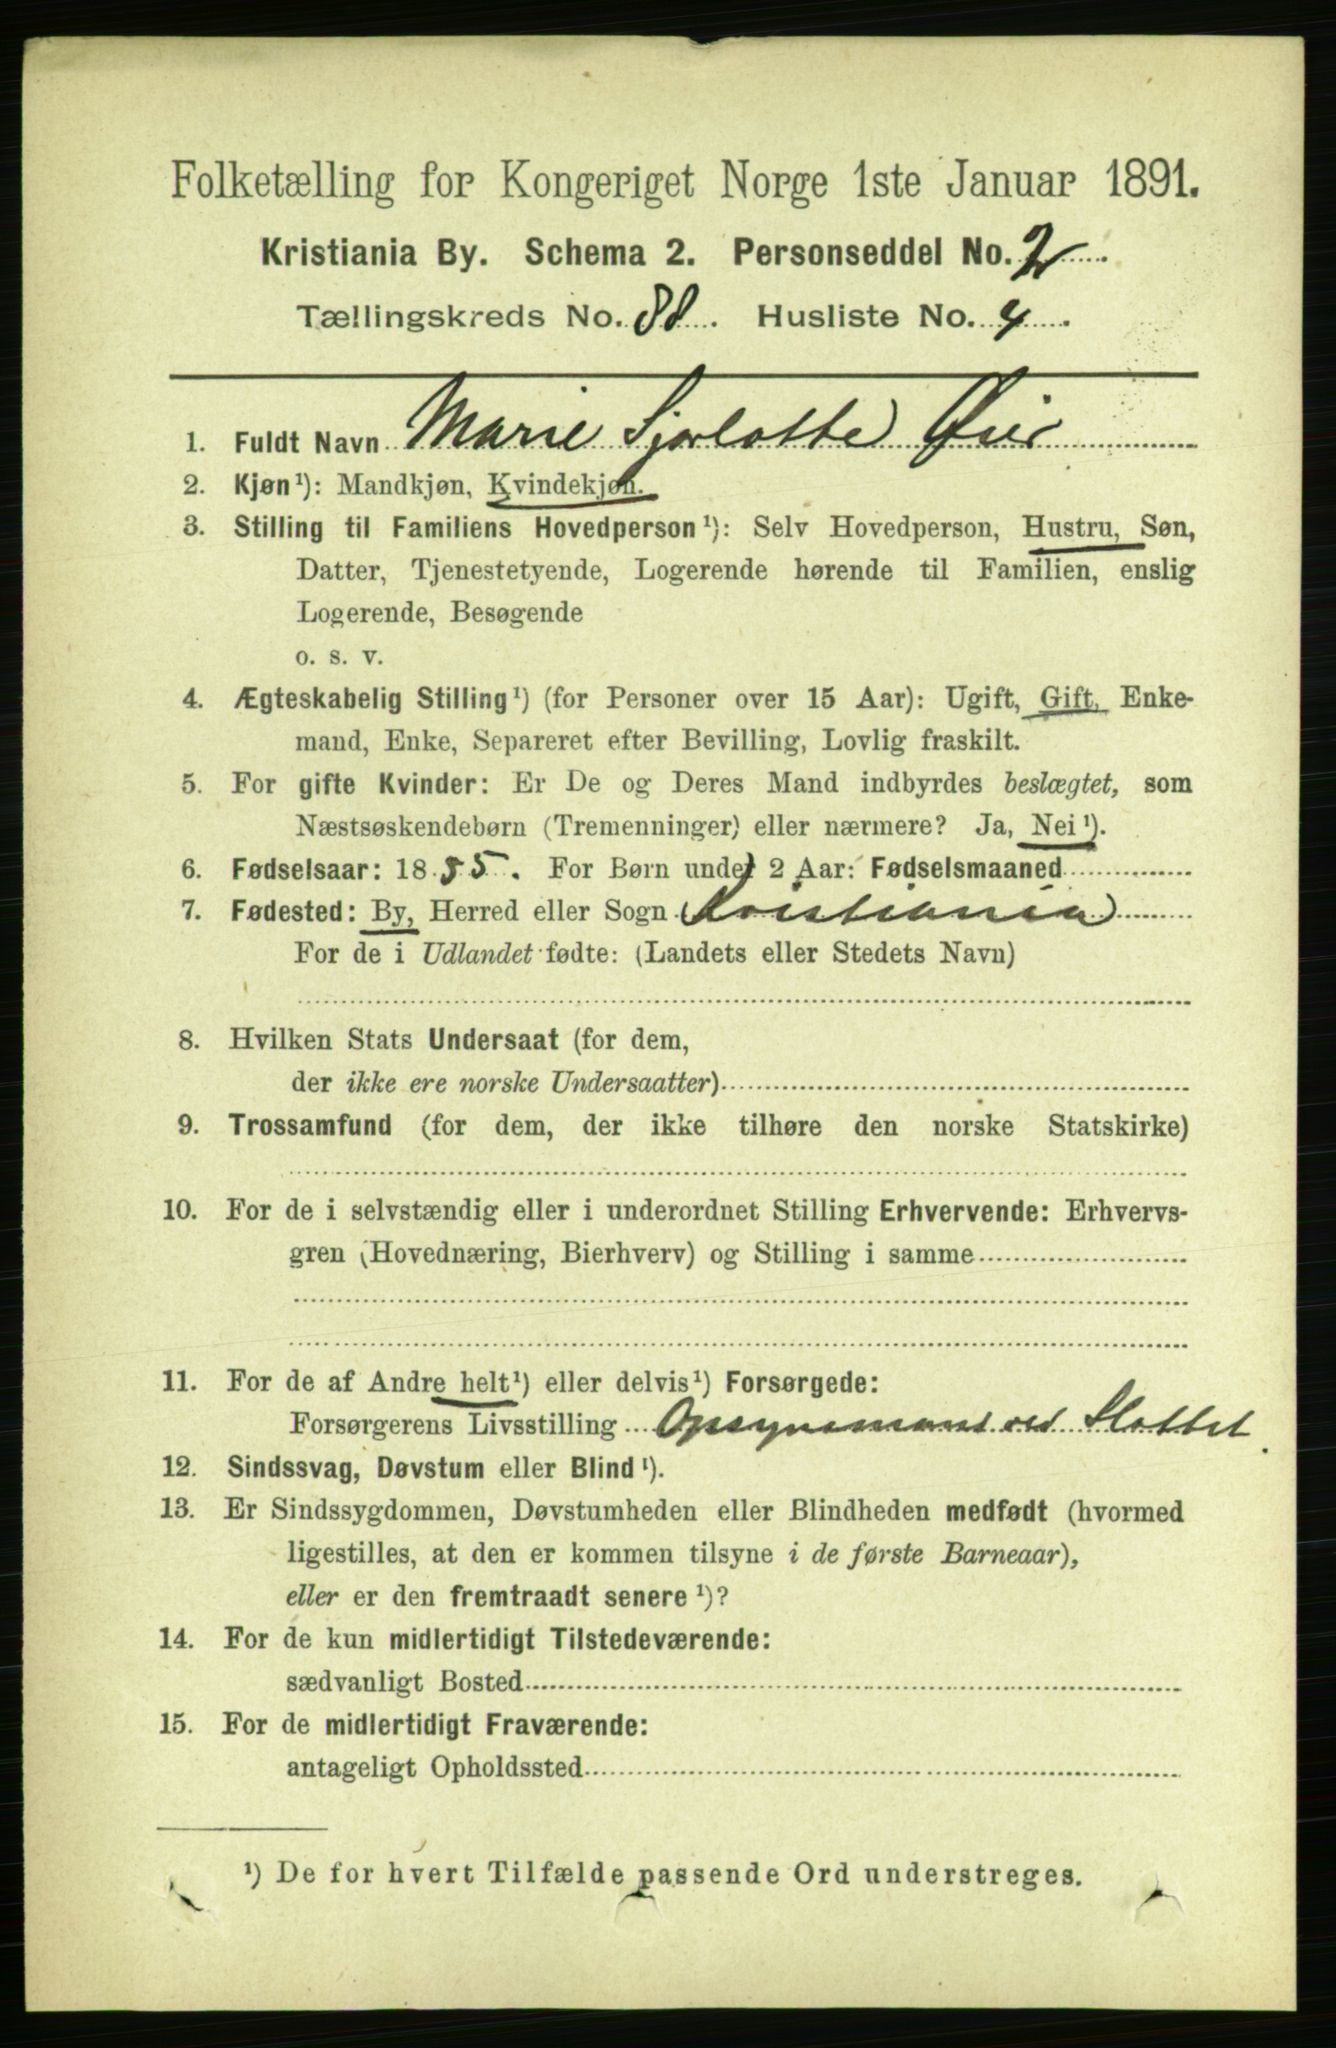 Folketælling for Kongeriget Norge 1ste Januar 1891.
Kristiania By. Schema 2. Personseddel No. 2
Tællingskreds No. 88. Husliste No. 4.
1. Fuldt Navn Marie Sjarlotte
2. Kjøn¹): Mandkjøn, Kvindekjøn.
3. Stilling til Familiens Hovedperson¹): Selv Hovedperson, Hustru, Søn,
Datter, Tjenestetyende, Logerende hørende til Familien, enslig
Logerende, Besøgende
o. s. v.
4. Ægteskabelig Stilling¹) (for Personer over 15 Aar): Ugift, Gift, Enke-
mand, Enke, Separeret efter Bevilling, Lovlig fraskilt.
5. For gifte Kvinder: Er De og Deres Mand indbyrdes beslægtet, som
Næstsøskendebørn (Tremenninger) eller nærmere? Ja, Nei¹).
6. Fødselsaar: 1855. For Børn under 2 Aar: Fødselsmaaned
7. Fødested: By, Herred eller Sogn Kristiania
For de i Udlandet fødte: (Landets eller Stedets Navn)
8. Hvilken Stats Undersaat (for dem,
der ikke ere norske Undersaatter)
9. Trossamfund (for dem, der ikke tilhøre den norske Statskirke)
10. For de i selvstændig eller i underordnet Stilling Erhvervende: Erhvervs-
gren (Hovednæring, Bierhverv) og Stilling i samme
11. For de af Andre helt¹) eller delvis¹) Forsørgede:
Forsørgerens Livsstilling Opsynsmand ved Slottet
12. Sindssvag, Døvstum eller Blind¹).
13. Er Sindssygdommen, Døvstumheden eller Blindheden medfødt (hvormed
ligestilles, at den er kommen tilsyne i de første Barneaar),
eller er den fremtraadt senere¹)?
14. For de kun midlertidigt Tilstedeværende:
sædvanligt Bosted
15. For de midlertidigt Fraværende:
antageligt Opholdssted
¹) De for hvert Tilfælde passende Ord understreges.